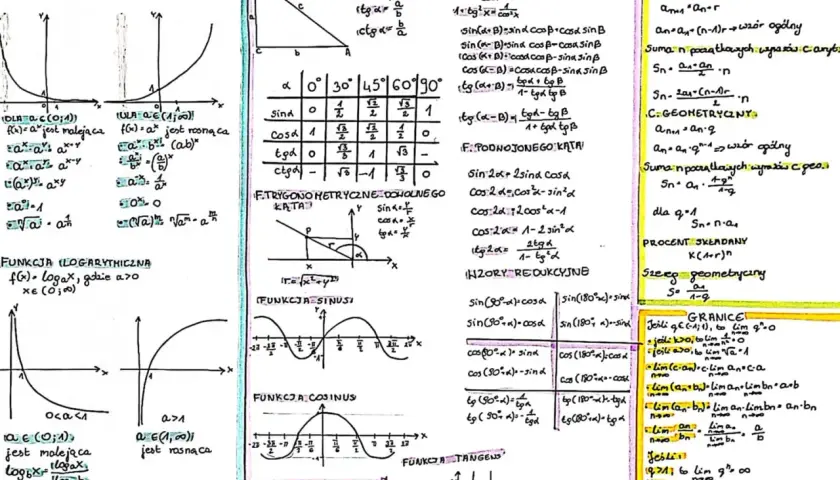 DLA a∈(0;1)
f(x)=aˣ jest malejąca
aˣ⁻ʸ
aˣʸ
a⁰=1
DLA a∈(1;∞)
f(x)=aˣ jest rosnąca
(ab)ˣ
(a/b)ˣ
FUNKCJA LOGARYTMICZNA
f(x)=logₐx, gdzie a>0
x∈(0;∞)
0<a<1
a∈(0;1),
jest malejąca
a>1
a∈(1,∞);
jest rosnąca
C b A
tgα= a/b
ctgα= b/a
α 0° 30° 45° 60° 90°
sinα 0 1/2 √2/2 √3/2 1
cosα 1 √3/2 √2/2 1/2 0
tgα 0 √3/3 1 √3 –
ctgα – √3 –1 √3/3 0
F. TRYGONOMETRYCZNE DOWOLNEGO
KĄTA
sinα= y/r
cosα= x/r
tgα= y/x
r=√x²+y²
FUNKCJA SINUS
FUNKCJA COSINUS
1+tg²x= 1/cos²x
sin(α+β)=sinα cosβ+cosα sinβ
sin(α-β)=sinα cosβ-cosα sinβ
cos(α+β)=cosα cosβ-sinα sinβ
tg(α+β)= tgα+tgβ / 1-tgα tgβ
tg(α-β)= tgα-tgβ / 1+tgα tgβ
F. PODWOJONEGO KĄTA
sin2α=2sinα cosα
cos2α=cos²α-sin²α
cos2α=2cos²α-1
cos2α=1-2sin²α
tg2α= 2tgα / 1-tg²α
WZORY REDUKCYJNE
sin(90°-α)=cosα
sin(90°+α)=cosα
cos(90°-α)=sinα
cos(90°+α)=-sinα
tg(90°-α)= 1/tgα
tg(90°+α)=- 1/tgα
sin(180°-α)=sinα
cos(180°+α)=-cosα
tg(180°-α)=-tgα
tg(180°+α)=tgα
FUNKCJA TANGENS
aₙ₊₁=aₙ+r
aₙ=a₁+(n-1)r → wzór ogólny
Suma n początkowych wyrazów C. aryt
Sₙ= a₁+aₙ / 2 ·n
Sₙ= 2a₁+(n-1)r / 2 ·n
C. GEOMETRYCZNY
aₙ₊₁=aₙ·q
aₙ=a₁·qⁿ⁻¹ ⇒ wzór ogólny
Suma n początkowych wyrazów C. geo.
Sₙ=a₁· 1-qⁿ / 1-q
dla q=1
Sₙ=n·a₁
PROCENT SKŁADANY
K(1+r)ⁿ
Szereg geometryczny
S= a₁ / 1-q
GRANICE
Jeśli q∈(-1;1), to lim qⁿ=0
n→∞
lim(c·aₙ)=c·lim aₙ=c·a
lim(aₙ+bₙ)=lim aₙ+lim bₙ=a+b
lim aₙ/bₙ = lim aₙ / lim bₙ = a/b
Jeśli:
q>1; to lim qⁿ=∞